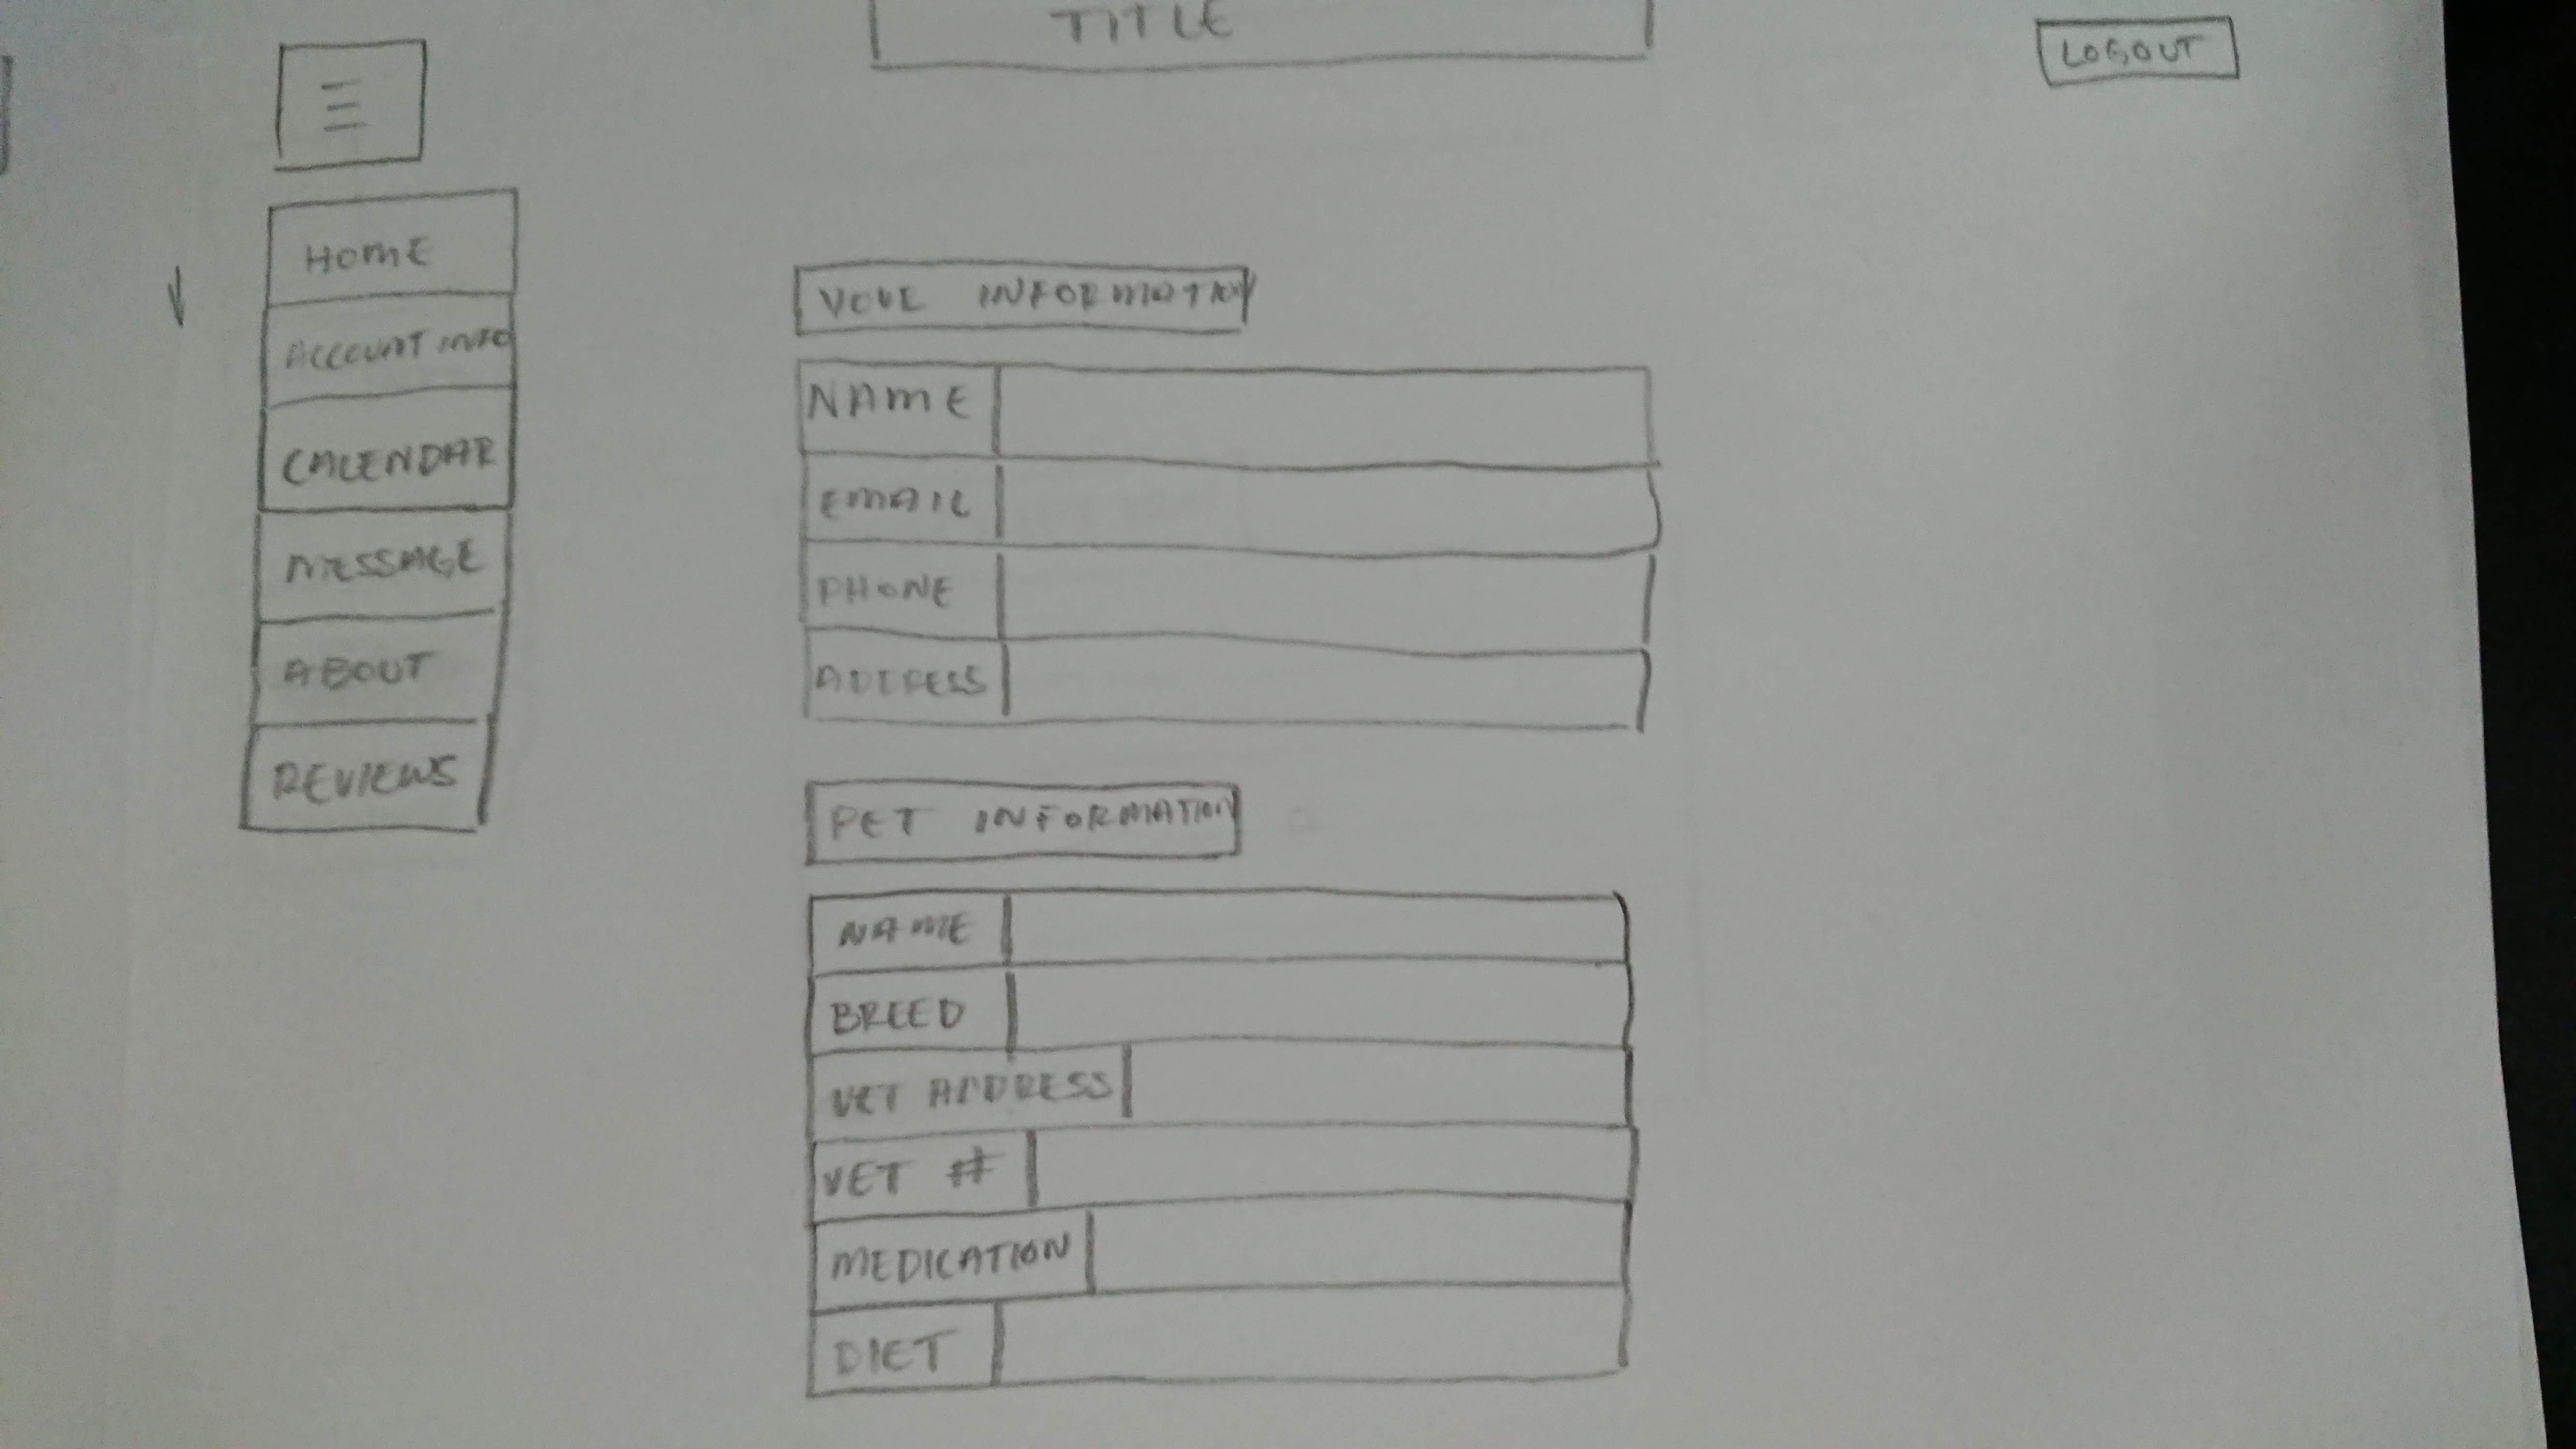 TITLE
LOGOUT
HOME
ACCOUNT INFO
CALENDAR
MESSAGE
ABOUT
REVIEWS
YOUR INFORMATION
NAME
EMAIL
PHONE
ADDRESS
PET INFORMATION
NAME
BREED
VET ADDRESS
VET #
MEDICATION
DIET